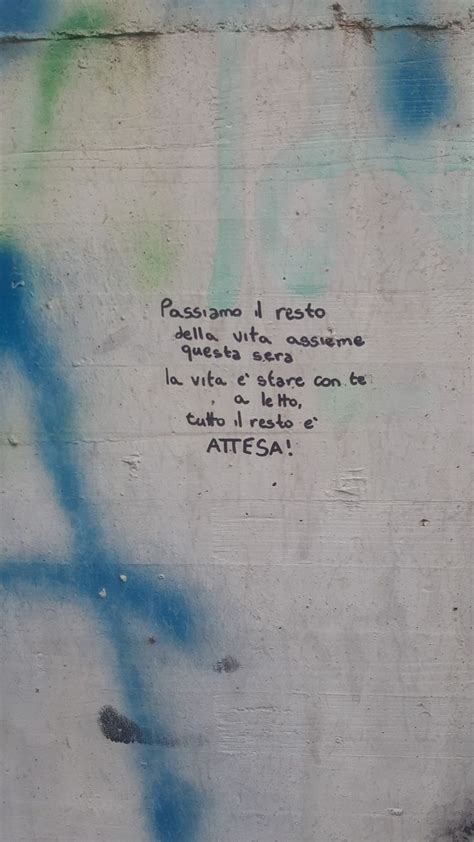 Passiamo il resto
della vita assieme
questa sera
la vita e' stare con te
a letto,
tutto il resto e'
ATTESA!